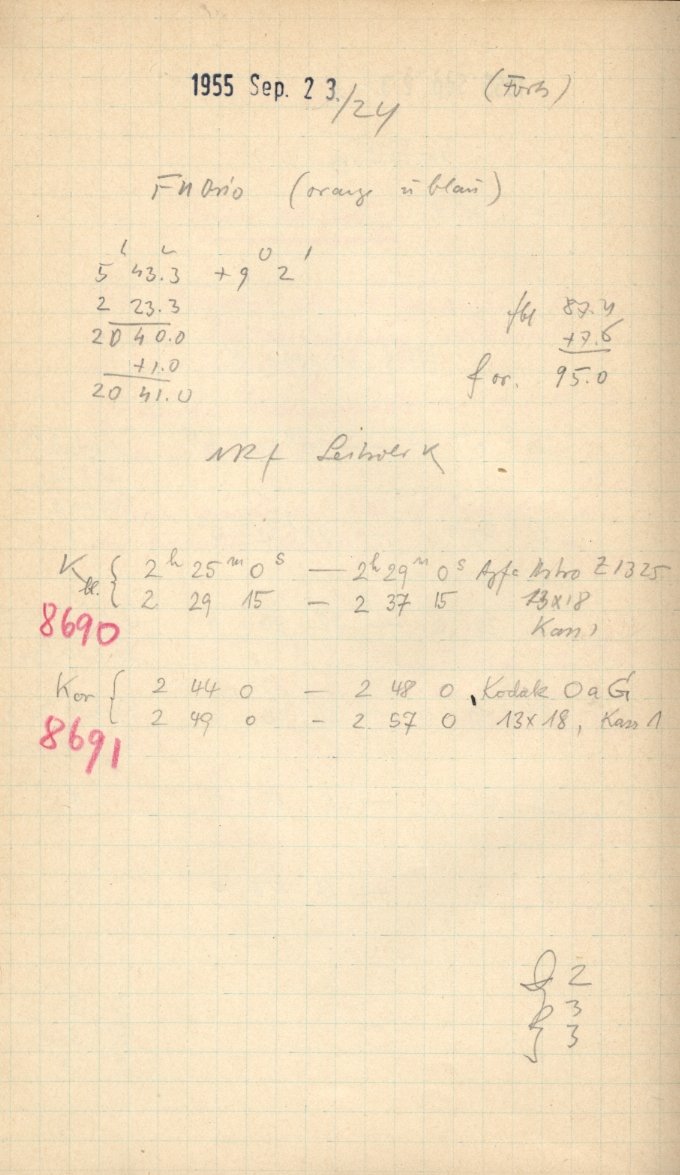 1955 Sep. 23./24 (Forts)
FU Orio (orange u blau)
5 h 43.3 +9° 2'
2 23.3
20 40.0
+1.0
20 41.0
fbl 87.4
+7.6
f or. 95.0
Kbl. { 2h 25m 0s — 2h 29m 0s Agfa Astro Z 1325
2 29 15 – 2 37 15 13x18
8690
Kor { 2 44 0 – 2 48 0, Kodak OaG
2 49 0 – 2 57 0 13x18, Kass 1
8691
2
3
3